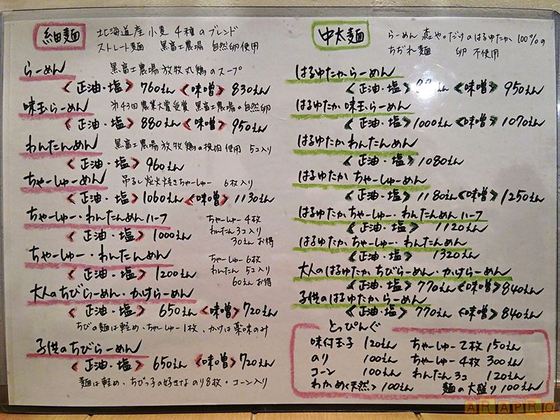 細麺
北海道産小麦4種のブレンド
ストレート麺 黒富士農場 自然卵使用
らーめん 黒富士農場放牧丸鶏のスープ
《正油・塩》760えん《味噌》830えん
味玉らーめん 黒富士農場の自然卵
《正油・塩》880えん《味噌》950えん
わんたんめん 使用 5コ入り
《正油・塩》960えん
ちゃーしゅーめん 吊るし炭火焼きちゃーしゅー 6枚入り
《正油・塩》1060えん《味噌》1130えん
ちゃーしゅー・わんたんめんハーフ
《正油・塩》1000えん
ちゃーしゅー4枚
わんたん3コ入り
30えんお得
ちゃーしゅー・わんたんめん
《正油・塩》1200えん
ちゃーしゅー6枚
わんたん5コ入り
60えんお得
大人のちびらーめん・かけらーめん
《正油・塩》650えん《味噌》720えん
ちびの麺は軽め・ちゃーしゅー1枚、かけは薬味のみ
子供のちびらーめん
《正油・塩》650えん《味噌》720えん
麺は軽め、ちびっ子の好きなのり8枚・コーン入り
中太麺
はるゆたか100%の
ちぢれ麺 卵不使用
はるゆたからーめん
《正油・塩》《味噌》950えん
はるゆたか味玉らーめん
《正油・塩》1000えん《味噌》1070えん
はるゆたかわんたんめん
《正油・塩》1080えん
はるゆたかちゃーしゅーめん
《正油・塩》1180えん《味噌》1250えん
はるゆたかちゃーしゅー・わんたんめんハーフ
《正油・塩》1120えん
はるゆたかちゃーしゅー・わんたんめん
《正油・塩》1320えん
大人のはるゆたかちびらーめん・かけらーめん
《正油・塩》770えん《味噌》840えん
子供のはるゆたからーめん
《正油・塩》770えん《味噌》840えん
とっぴんぐ
味付玉子 120えん ちゃーしゅー2枚 150えん
のり 100えん ちゃーしゅー4枚 300えん
コーン 100えん わんたん3コ 120えん
わかめ<天然> 100えん 麺の大盛り 100えん